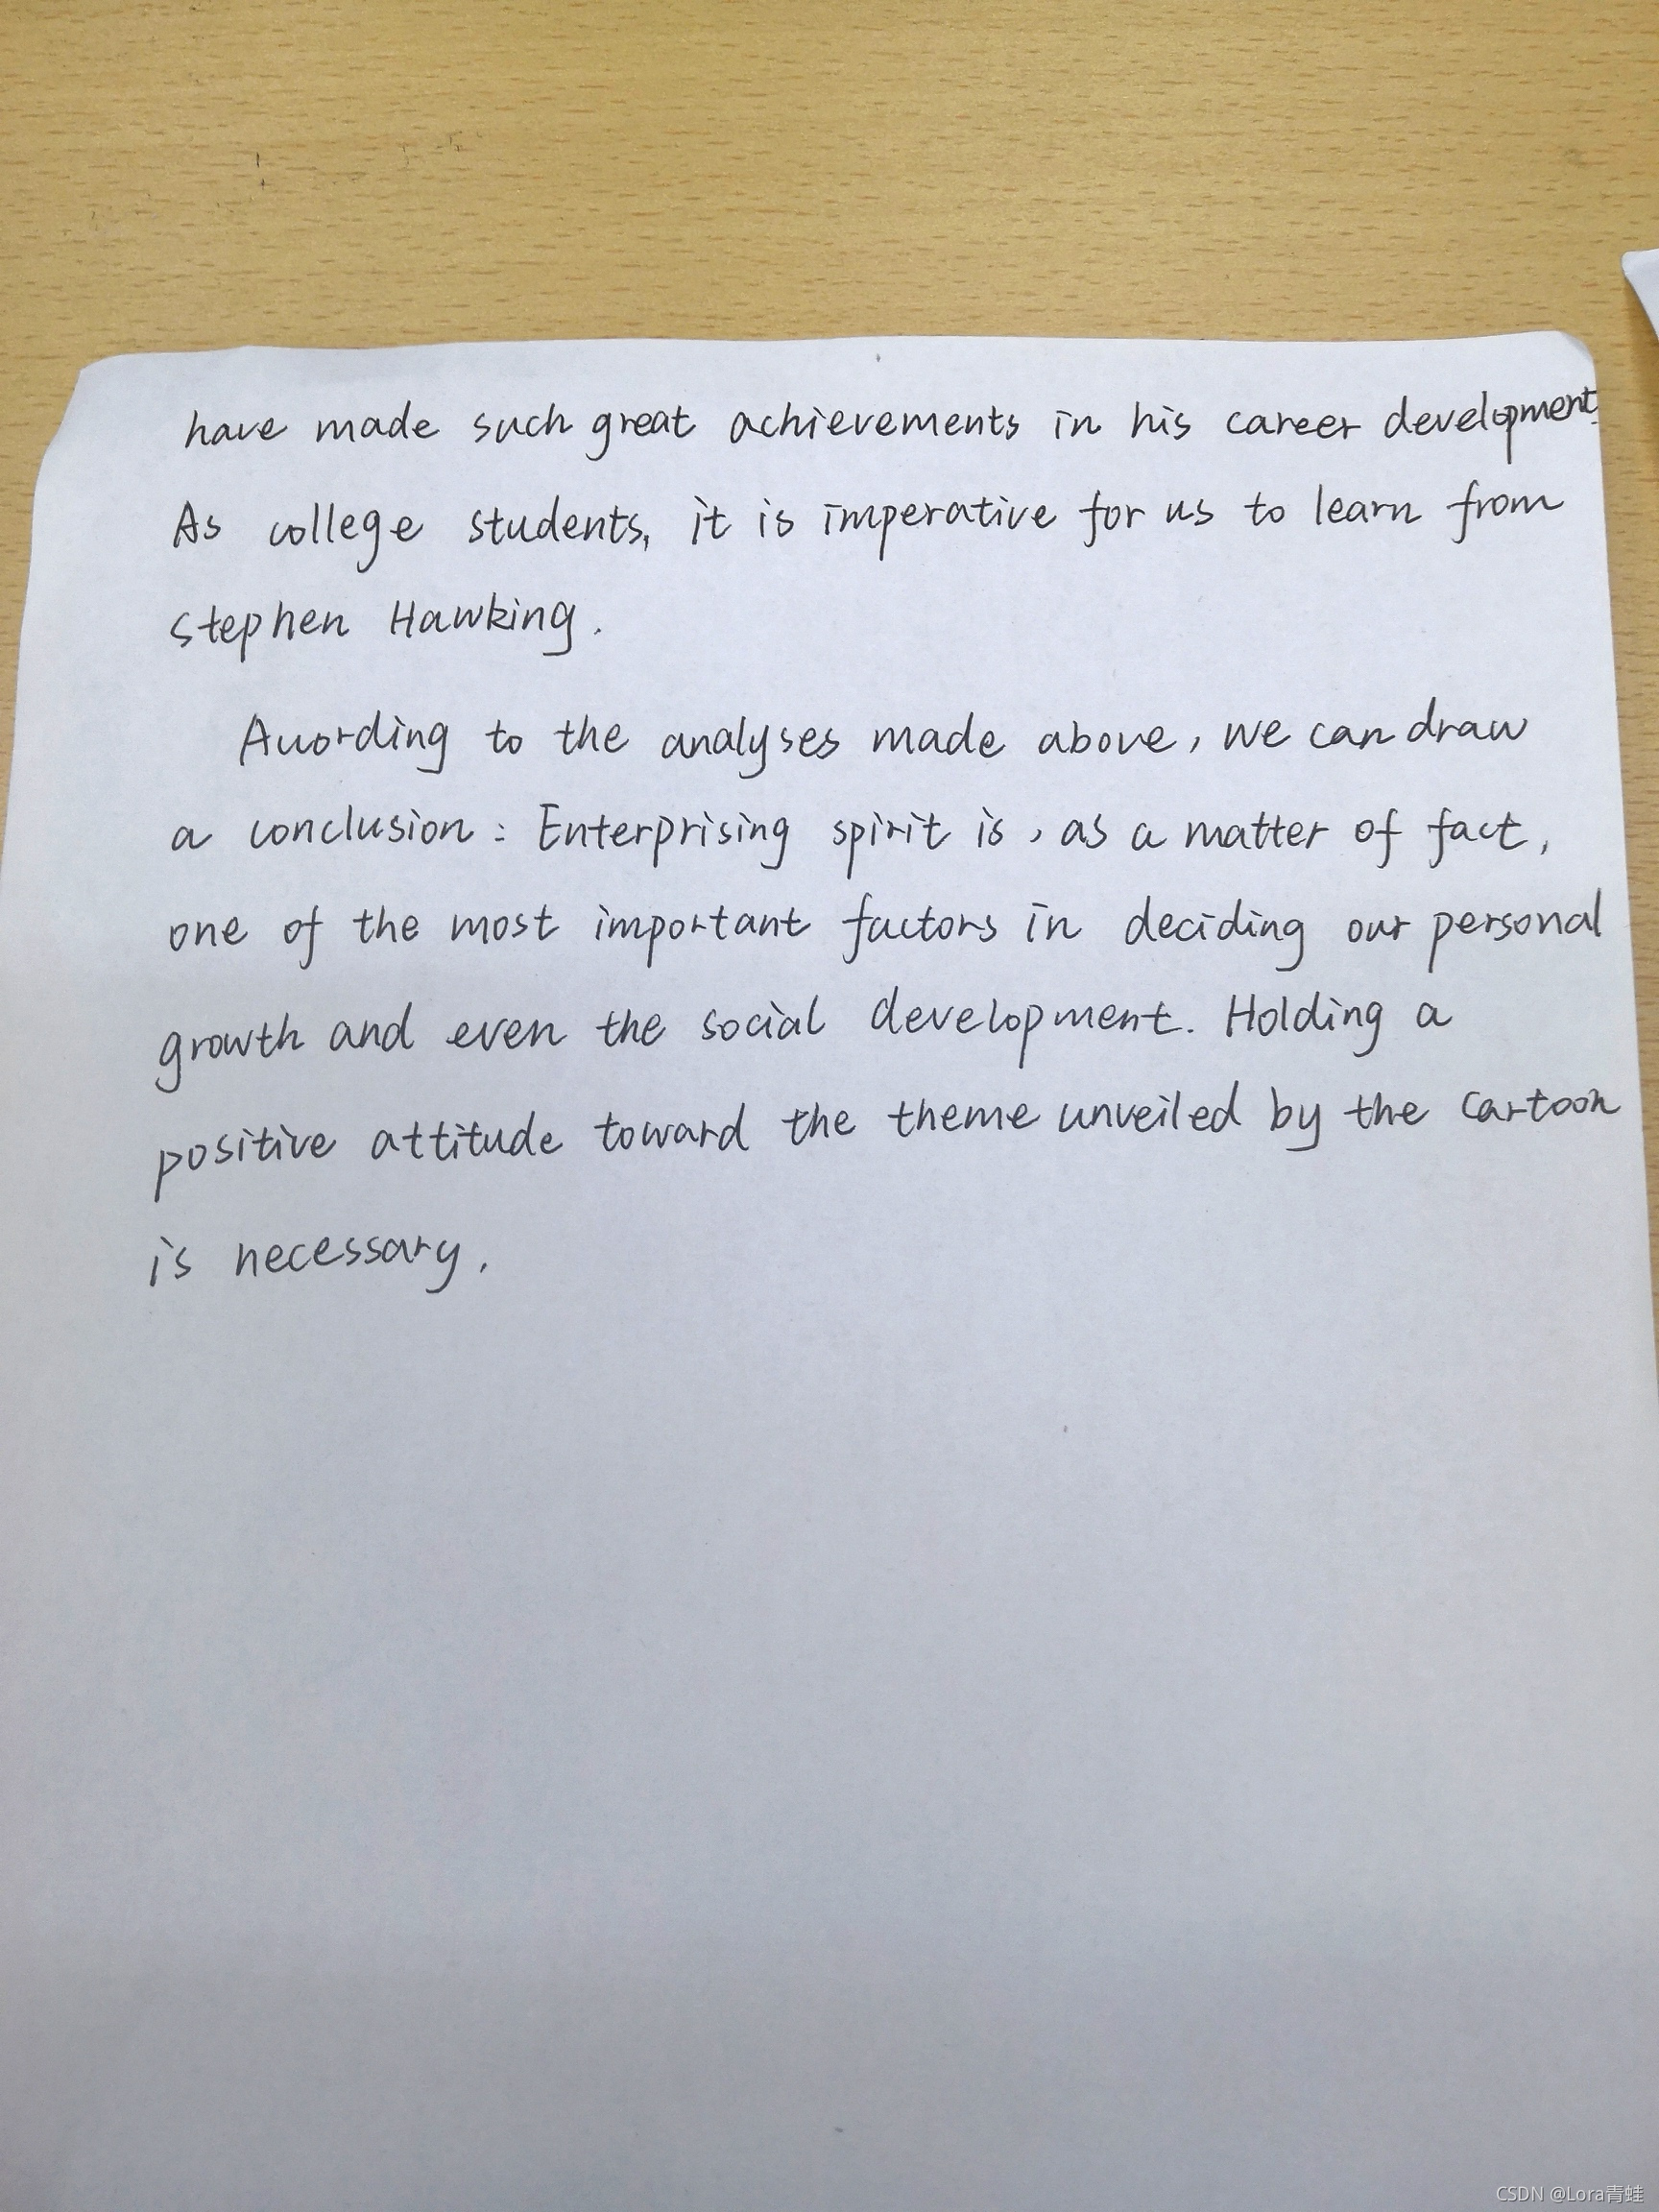 have made such great achievements in his career development.
As college students, it is imperative for us to learn from
Stephen Hawking.
According to the analyses made above, we can draw
a conclusion: Enterprising spirit is, as a matter of fact,
one of the most important factors in deciding our personal
growth and even the social development. Holding a
positive attitude toward the theme unveiled by the cartoon
is necessary.
CSDN @Lora青蛙